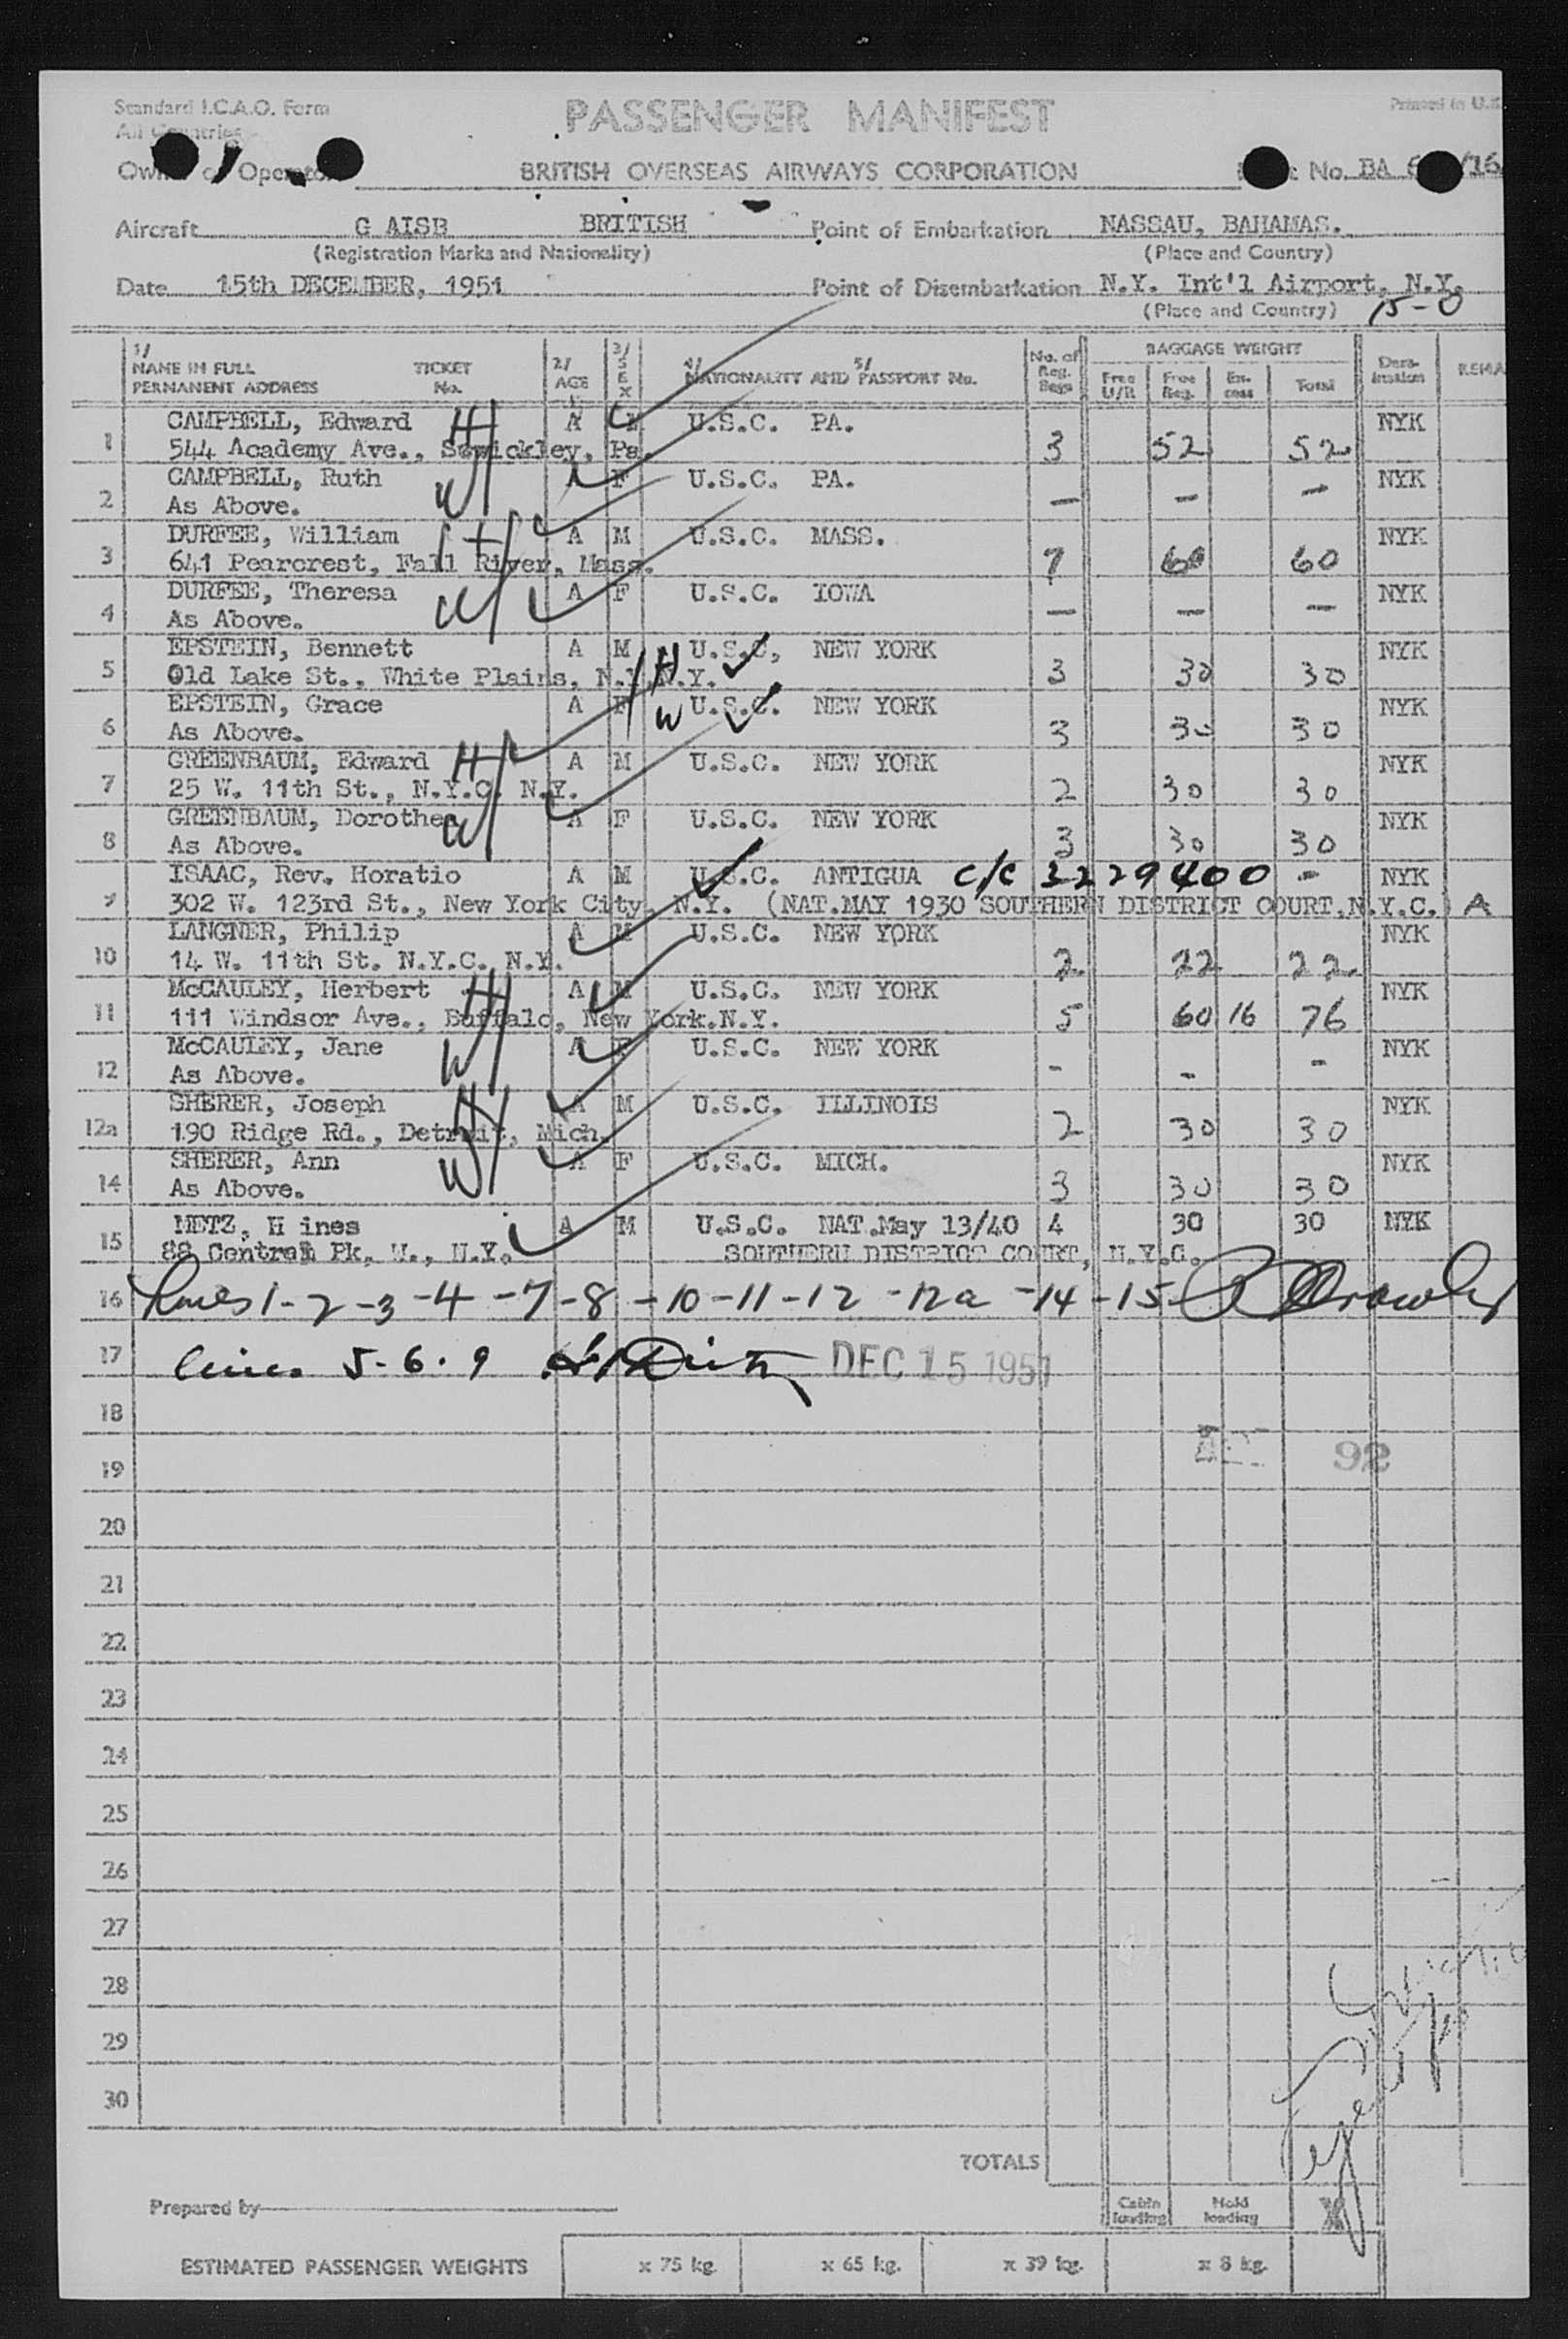 Standard I.C.A.O. Form
PASSENGER MANIFEST
Printed in U.K.
All Countries
Owner or Operator BRITISH OVERSEAS AIRWAYS CORPORATION No. BA /16
Aircraft G AISB BRITISH Point of Embarkation NASSAU, BAHAMAS.
(Registration Marks and Nationality) (Place and Country)
Date 15th DECEMBER, 1951 Point of Disembarkation N.Y. Int'l Airport, N.Y.
(Place and Country) 15-0
1/ NAME IN FULL PERMANENT ADDRESS TICKET No. 2/ AGE 3/ SEX 4/ NATIONALITY AND 5/ PASSPORT No. No. of Reg. Bags BAGGAGE WEIGHT Free U/R Free Reg. Excess Total Destination REMA
1 CAMPBELL, Edward H A M U.S.C. PA. 3 52 52 NYK
544 Academy Ave., Sewickley, Pa.
2 CAMPBELL, Ruth W F U.S.C. PA. — — — NYK
As Above.
3 DURFEE, William H A M U.S.C. MASS. 7 60 60 NYK
641 Pearcrest, Fall River, Mass.
4 DURFEE, Theresa W A F U.S.C. IOWA — — — NYK
As Above.
5 EPSTEIN, Bennett A M H U.S.C, NEW YORK 3 30 30 NYK
Old Lake St., White Plains, N.Y. N.Y.
6 EPSTEIN, Grace A F W U.S.C. NEW YORK 3 30 30 NYK
As Above.
7 GREENBAUM, Edward H A M U.S.C. NEW YORK 2 30 30 NYK
25 W. 11th St., N.Y.C. N.Y.
8 GREENBAUM, Dorothea W A F U.S.C. NEW YORK 3 30 30 NYK
As Above.
9 ISAAC, Rev. Horatio A M U.S.C. ANTIGUA C/C 3229400 - NYK
302 W. 123rd St., New York City, N.Y. (NAT.MAY 1930 SOUTHERN DISTRICT COURT.N.Y.C.) A
10 LANGNER, Philip A M U.S.C. NEW YORK 2 22 22 NYK
14 W. 11th St. N.Y.C. N.Y.
11 McCAULEY, Herbert H A M U.S.C. NEW YORK 5 60 16 76 NYK
111 Windsor Ave., Buffalo, New York.N.Y.
12 McCAULEY, Jane W A F U.S.C. NEW YORK - - - NYK
As Above.
12a SHERER, Joseph H A M U.S.C. ILLINOIS 2 30 30 NYK
190 Ridge Rd., Detroit, Mich.
14 SHERER, Ann W A F U.S.C. MICH. 3 30 30 NYK
As Above.
15 METZ, H ines A M U.S.C. NAT.May 13/40 4 30 30 NYK
88 Central Pk, W., N.Y. SOUTHERN DISTRICT COURT, N.Y.C.
16 Lines 1-2-3-4-7-8-10-11-12-12a-14-15
17 Lines 5-6-9 DEC 15 1951
18
19 92
20
21
22
23
24
25
26
27
28
29
30
TOTALS
Prepared by
Cabin loading Hold loading
ESTIMATED PASSENGER WEIGHTS x 75 kg. x 65 kg. x 39 kg. x 8 kg.